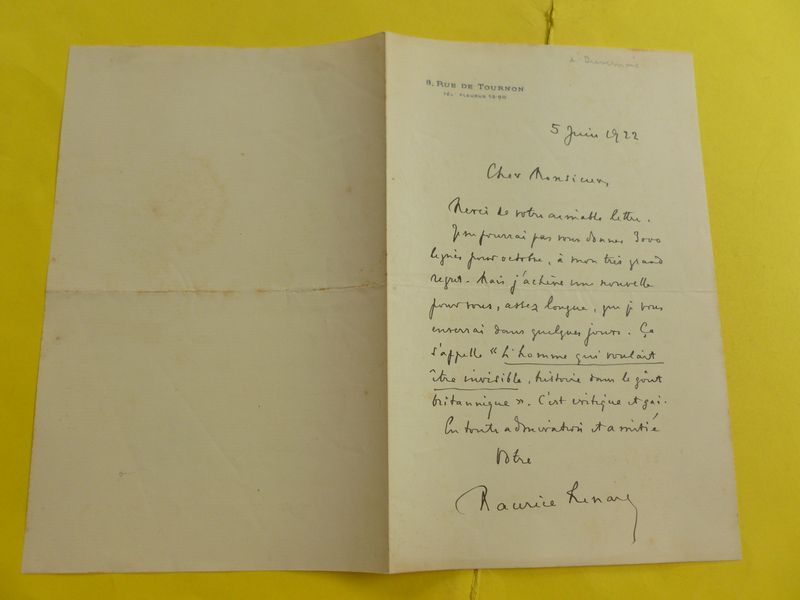 à Duvernois
8, RUE DE TOURNON
TÉL. FLEURUS
5 Juin 1922
Cher Monsieur,
Merci de votre aimable lettre.
Je ne pourrai pas vous donner 3000
lignes pour octobre, à mon très grand
regret. Mais j'achève une nouvelle
pour vous, assez longue, que je vous
enverrai dans quelques jours. Ça
s'appelle « L'homme qui voulait
être invisible, histoire dans le goût
britannique ». C'est critique et gai.
En toute admiration et amitié
Votre
Maurice Renard